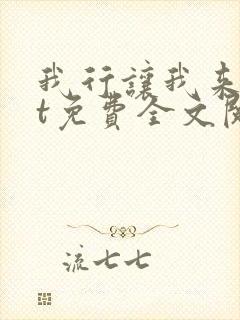 我行讓我來
t免費全文閱
流七七